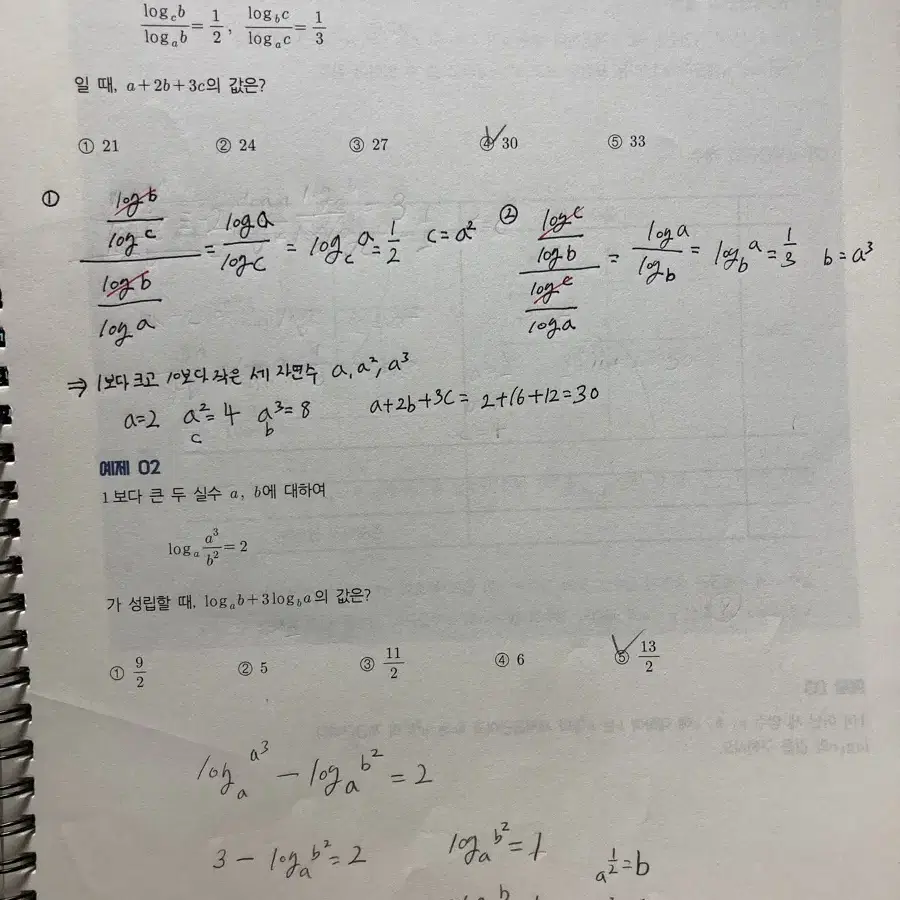 log_c b / log_a b = 1/2 , log_b c / log_a c = 1/3
일 때, a+2b+3c의 값은?
① 21 ② 24 ③ 27 ④ 30 ⑤ 33
① (log b / log c) / (log b / log a) = log a / log c = log_c a = 1/2 c=a²
② (log c / log b) / (log c / log a) = log a / log b = log_b a = 1/3 b=a³
⇒ 1보다 크고 10보다 작은 세 자연수 a, a², a³
a=2 a²=4 a³=8 a+2b+3c = 2+16+12=30
c b
예제 02
1보다 큰 두 실수 a, b에 대하여
log_a a³/b² = 2
가 성립할 때, log_a b+3log_b a의 값은?
① 9/2 ② 5 ③ 11/2 ④ 6 ⑤ 13/2
log_a a³ − log_a b² = 2
3 − log_a b² = 2 log_a b² = 1 a^(1/2) = b